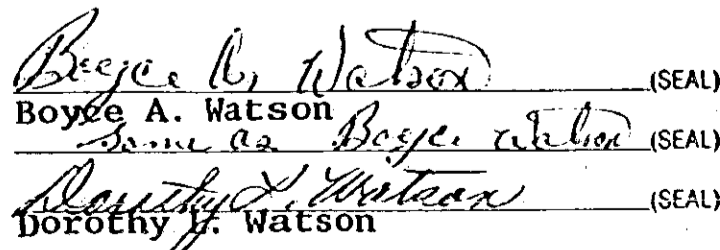 Boyce A. Watson (SEAL)
Boyce A. Watson
Same as Boyce Watson (SEAL)
Dorothy L. Watson (SEAL)
Dorothy L. Watson